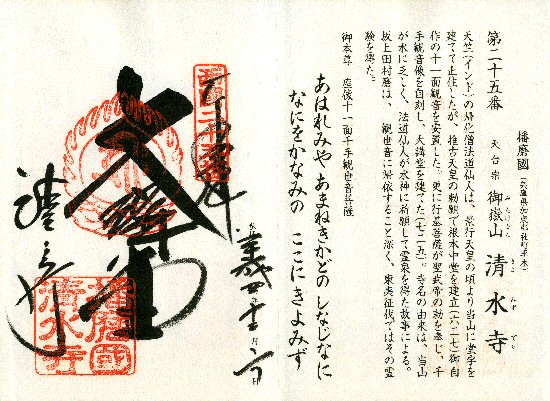 第二十五番
播磨國(兵庫県加東郡社町平木)
天台宗 御嶽山 清水寺
みたけさん きよみずでら
天竺(インド)の帰化僧法道仙人は、景行天皇の頃より当山に堂宇を
建てて止住したが、推古天皇の勅願で根本中堂を建立(六二七)御自
作の十一面観音を安置した。更に行基菩薩が聖武帝の勅を奉じ、千
手観音像を自刻し、大講堂を建てた(七二五)。寺名の由来は、当山
が水に乏しく、法道仙人が水神に祈願して霊泉を得た故事による。
坂上田村磨は、観世音に帰依すること深く、東夷征伐ではその霊
験を得た。
御本尊 座像十一面千手観世音菩薩
あはれみや あまねきかどの しなじなに
なにをかなみの ここにきよみず
西国二十五番
播磨国
清水寺